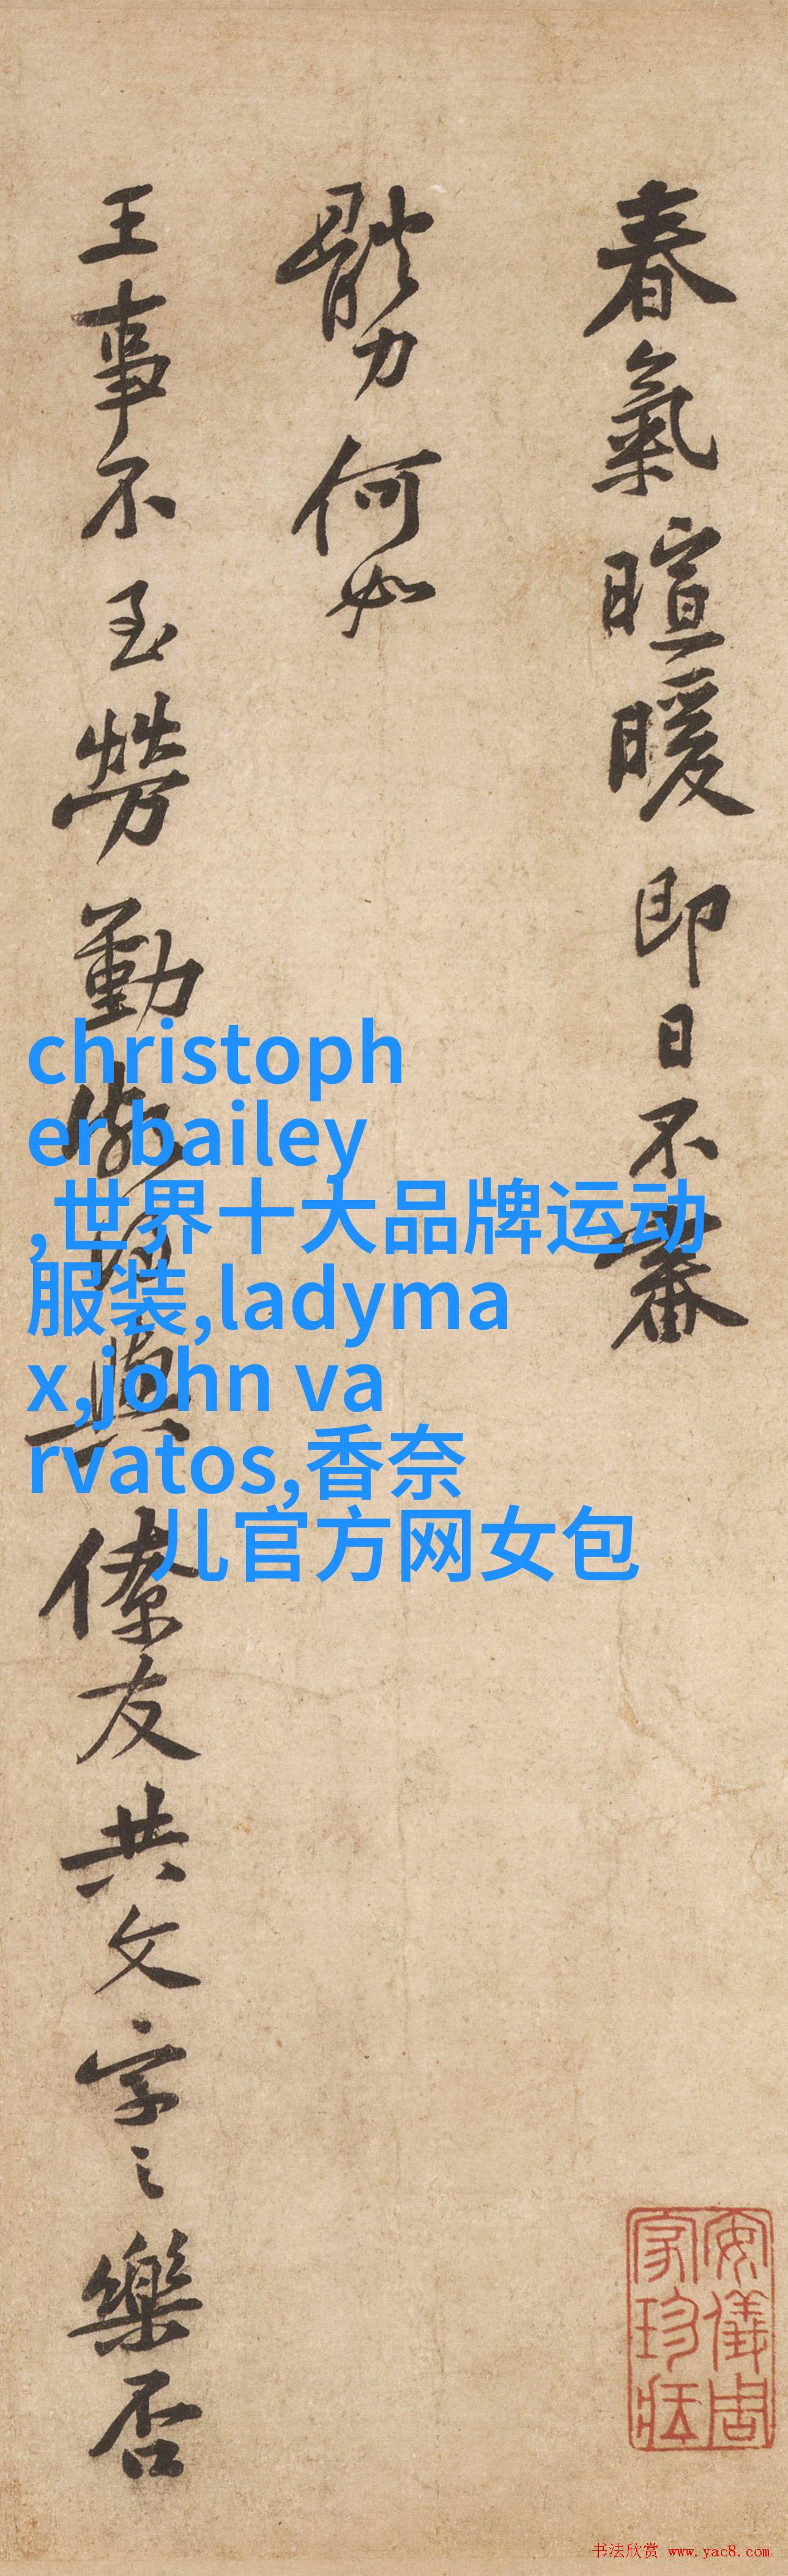 春氣暄暖即日不審
體力何如
王事不至勞勤與僚友共文字之樂否
christoph
er bailey
,世界十大品牌运动
服装,ladyma
x,john va
rvatos,香奈
儿官方网女包
安儀周
家珍藏
书法欣赏 www.yac8.com